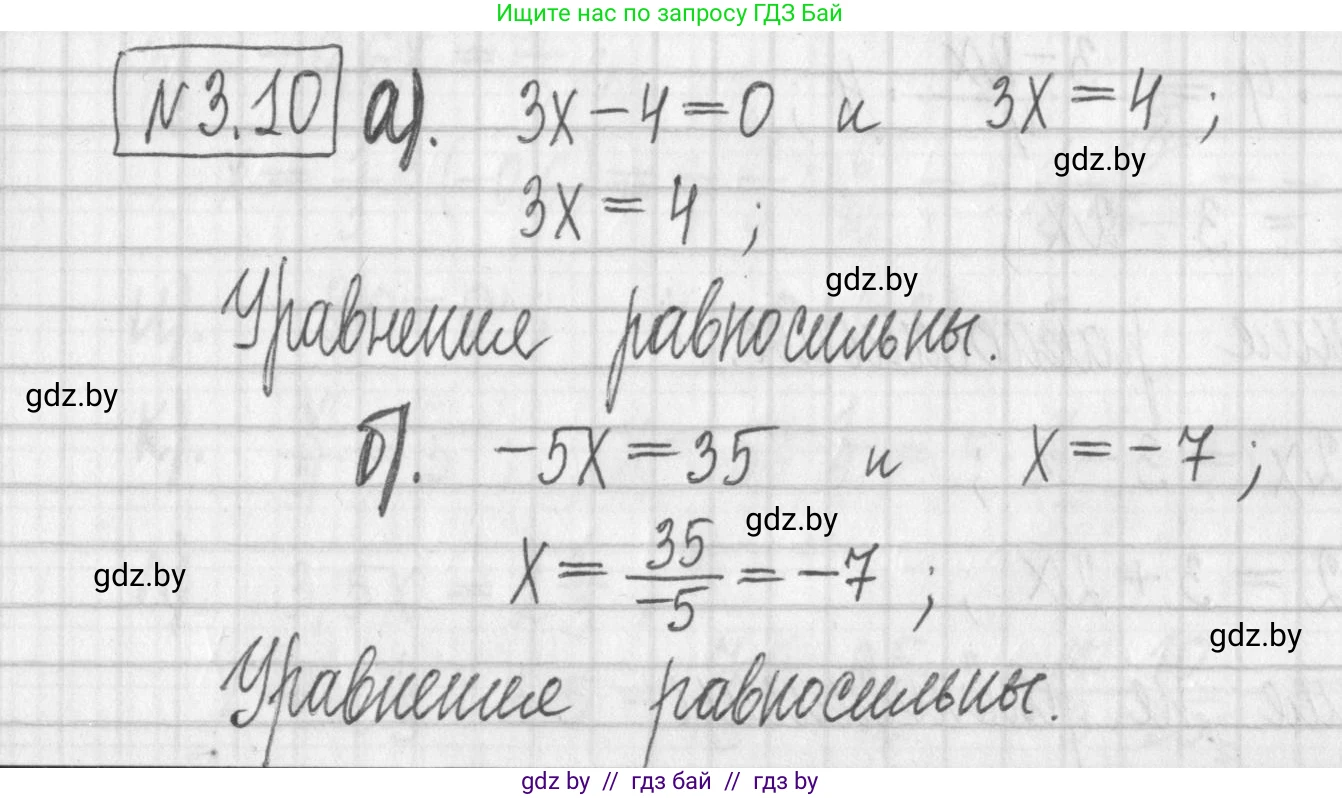 Ищите нас по запросу ГДЗ Бай
N 3.10 а). 3x - 4 = 0 и 3x = 4 ;
gdz.by
3x = 4 ;
gdz.by
Уравнения равносильны.
gdz.by
б). -5x = 35 и x = -7 ;
gdz.by
x = 35/-5 = -7 ;
gdz.by
gdz.by
Уравнения равносильны.
gdz by // гдз бай // гдз by